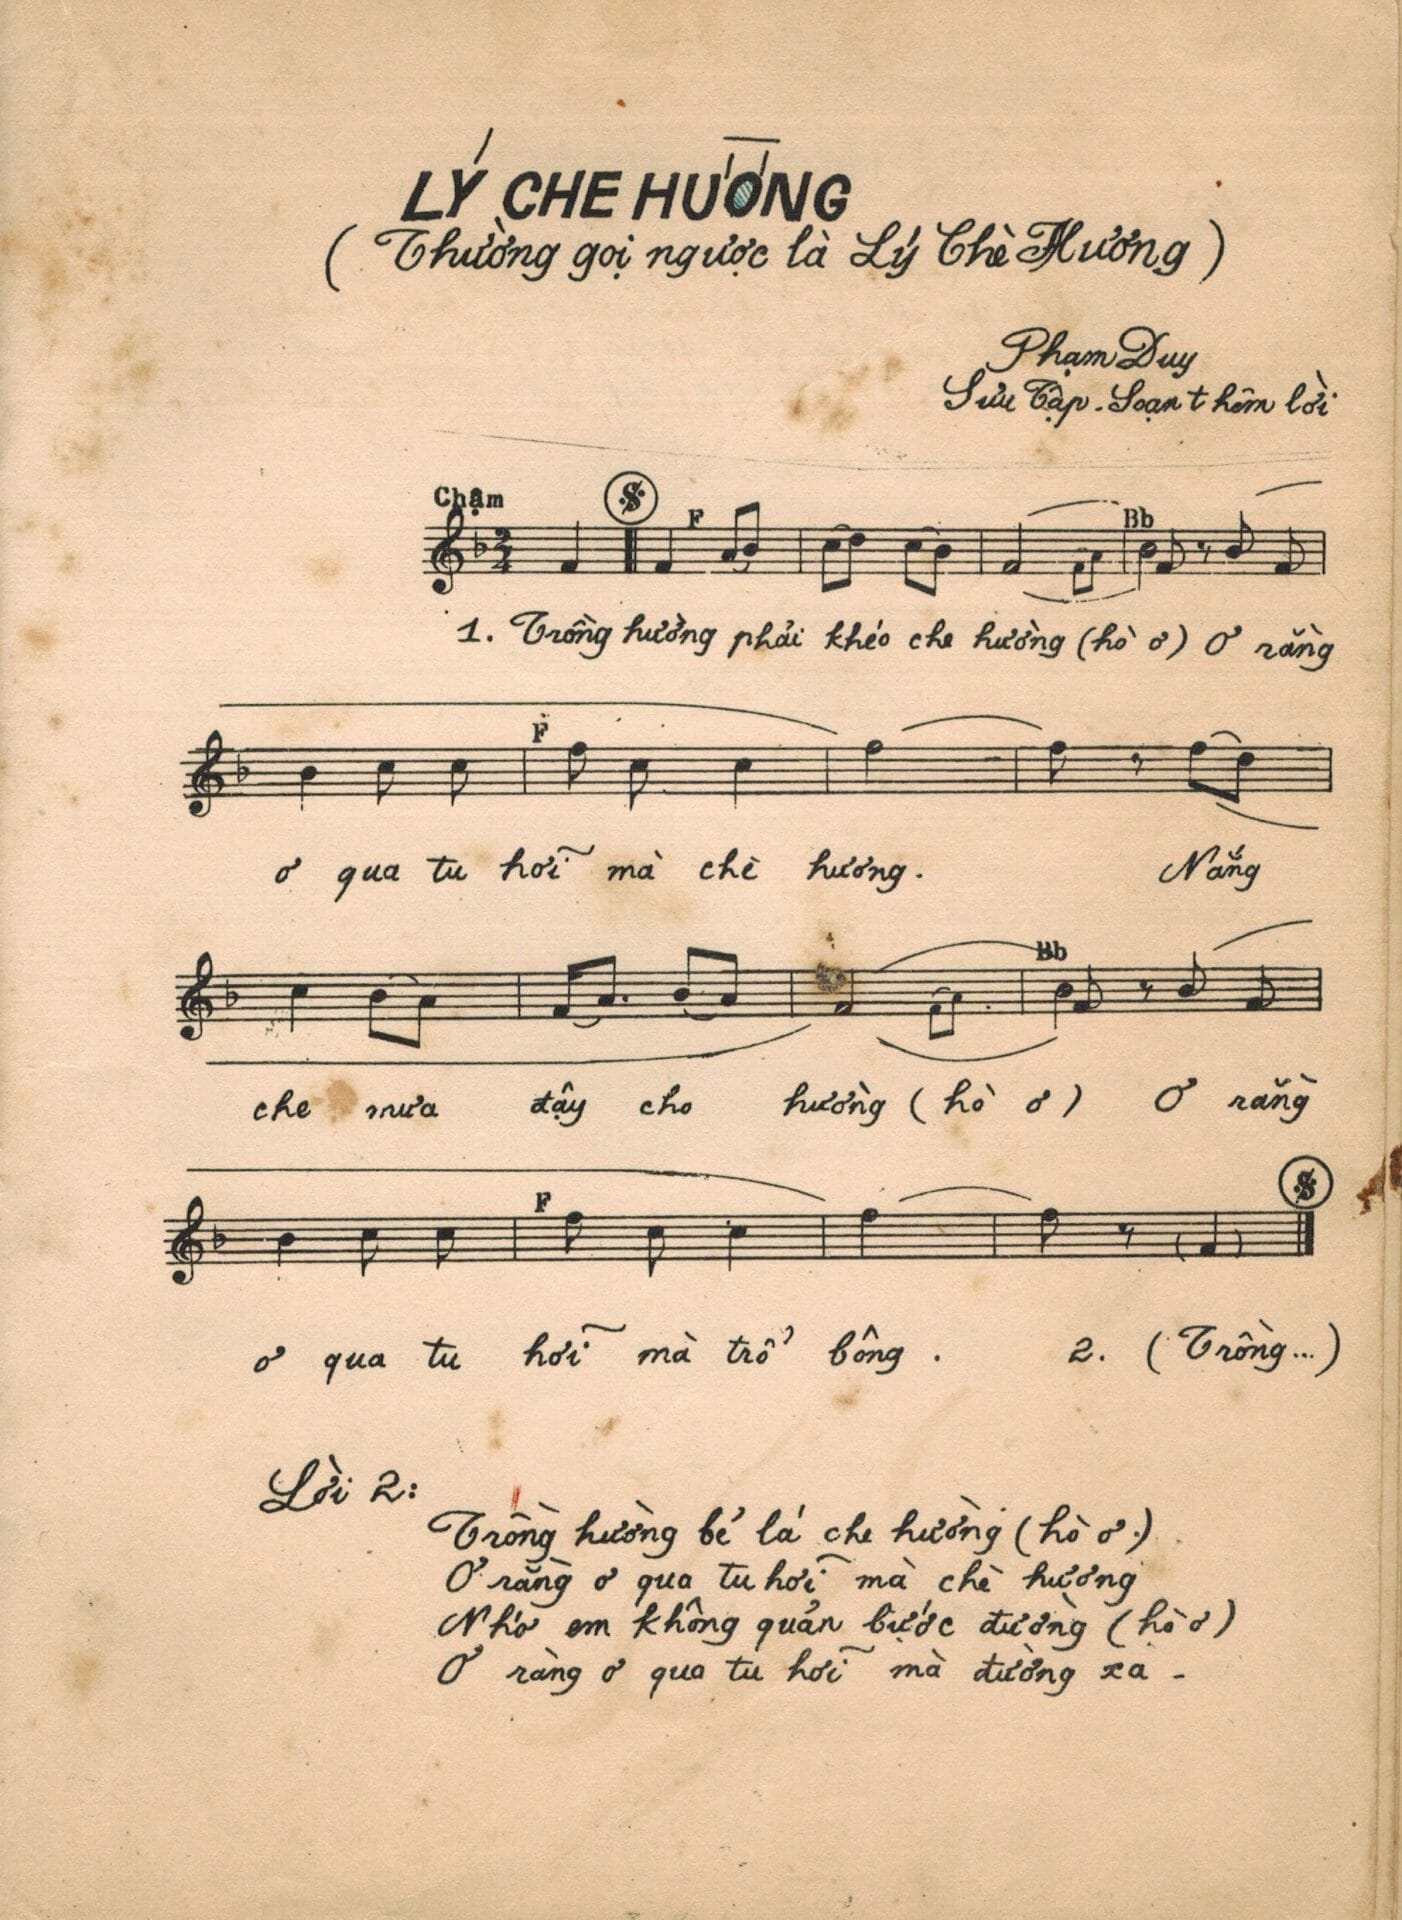 LÝ CHE HƯỜNG
(Thường gọi ngược là Lý Chè Hương)
Phạm Duy
Sưu Tập. Soạn thêm lời
Chậm
F Bb
1. Trồng hường phải khéo che hường (hò ơ) Ơ rằng
F
ơ qua tu hơĩ mà chè hương. Nắng
Bb
che mưa đậy cho hường (hò ơ) Ơ rằng
F
ơ qua tu hơĩ mà trổ bông. 2. (Trồng...)
Lời 2:
Trồng hường bẻ lá che hường (hò ơ.)
Ơ rằng ơ qua tu hơĩ mà chè hương
Nhớ em không quản bước đường (hò ơ)
Ơ ràng ơ qua tu hơĩ mà đường xa -